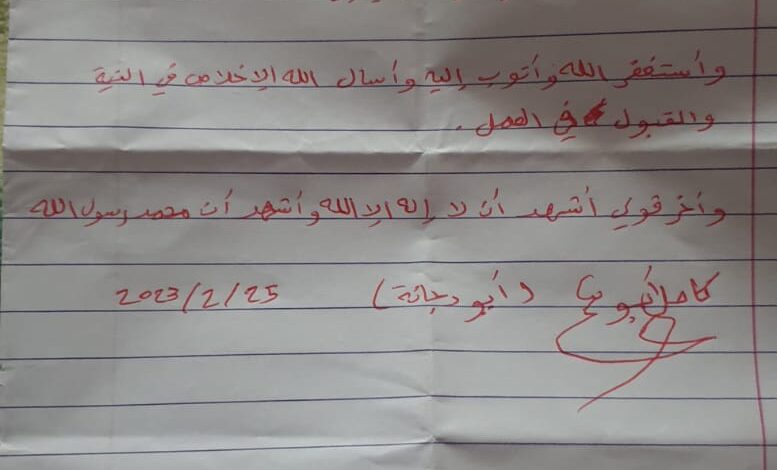 وأستغفر الله وأتوب إليه وأسال الله الإخلاص في النية
والقبول في العمل .
وأخر قولي أشهد أن لا إله إلا الله وأشهد أن محمد رسول الله
كامل (أبو دجانة) 2023/2/25